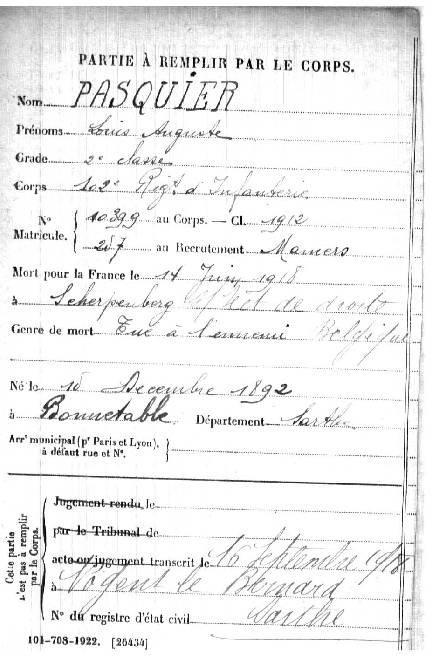 PARTIE À REMPLIR PAR LE CORPS.
Nom PASQUIER
Prénoms Louis Auguste
Grade 2e classe
Corps 102e Régt d'Infanterie
N° Matricule. { 10399 au Corps. — Cl. 1912
{ 207 au Recrutement Mamers
Mort pour la France le 14 Juin 1918
à Scherpenberg de droite
Genre de mort Tué à l'ennemi Belgique
Né le 18 Décembre 1892
à Bonnetable Département Sarthe
Arrt municipal (pr Paris et Lyon), à défaut rue et N°. {
Cette partie n'est pas à remplir par le Corps.
Jugement rendu le
par le Tribunal de
acte ou jugement transcrit le 16 Septembre 1918
à Nogent le Bernard
N° du registre d'état civil Sarthe
101-708-1922. [26434]